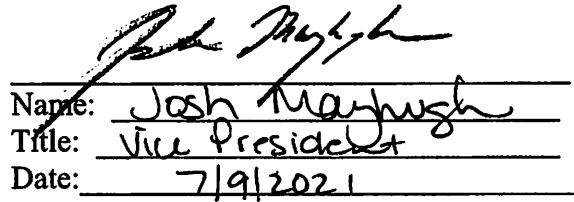 Josh Mayhugh
Name: Josh Mayhugh
Title: Vice President
Date: 7/9/2021